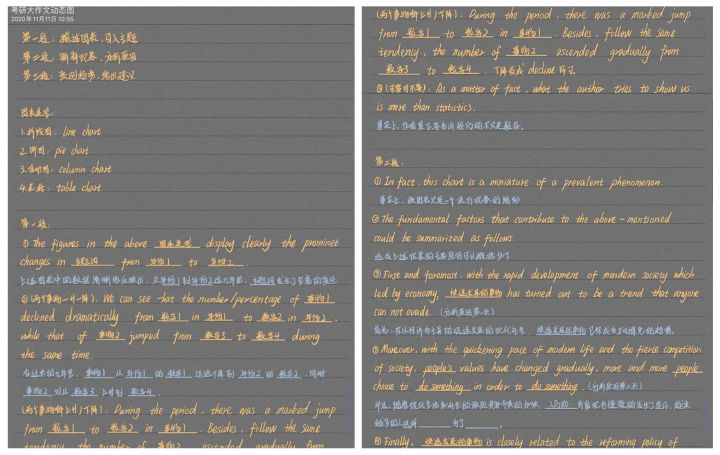 考研大作文动态图
2020年11月11日 10:55
第一段：描述图表，引入主题
第二段：
第三段：
图表类型：
1.折线图：line chart
2.饼图：pie chart
3.柱形图：column chart
4.表格：table chart
第一段：
① The figures in the above 图表类型 display clearly the prominet
changes in 主题词 from 年份1 to 年份2 .
上述图表中的数据清晰地反映出，从年份1到年份2这几年间，主题词发生了显著的变化
②(两个事物一升一降)：We can see that the number/percentage of 事物1
declined dramatically from 数字1 in 年份1 to 数字2 in 年份2 ,
while that of 事物2 jumped from 数字3 to 数字4 during
the same time.
在过去的几年里，事物1 从 年份1 的 数字1 下降到 年份2 的 数字2 ，同时
事物2 则从 数字3 上升到 数字4 .
(两个事物都上升/下降)：During the period, there was a marked jump
from 数字1 to 数字2 in 事物1 . Besides, follow the same
tendency, the number of 事物2 ascended gradually from
(两个事物都上升/下降)：During the period, there was a marked jump
from 数字1 to 数字2 in 事物1 . Besides, follow the same
tendency, the number of 事物2 ascended gradually from
数字3 to 数字4 . 下降改成 decline 即可.
③(可写可不写)：As a matter of fact, what the author tries to show us
is more than statistics.
事实上，作者
第二段：
① In fact, this chart is a miniature of a prevalent phenomenon.
事实上，
② The fundamental factors that contribute to the above-mentioned
could be summarized as follows.
③ First and foremost, with the rapid development of modern society which
led by economy, 快速发展的事物 has turned out to be a trend that anyone
can not evade. (分析原因第一点)
首先，快速发展的事物已经成为不可避免的趋势.
④ Moreover, with the quickening pace of modern life and the fierce competition
of society, people's values have changed gradually, more and more people
chose to do something in order to do something . (分析原因第二点)
⑤ Finally, 快速发展的事物 is closely related to the reforming policy of